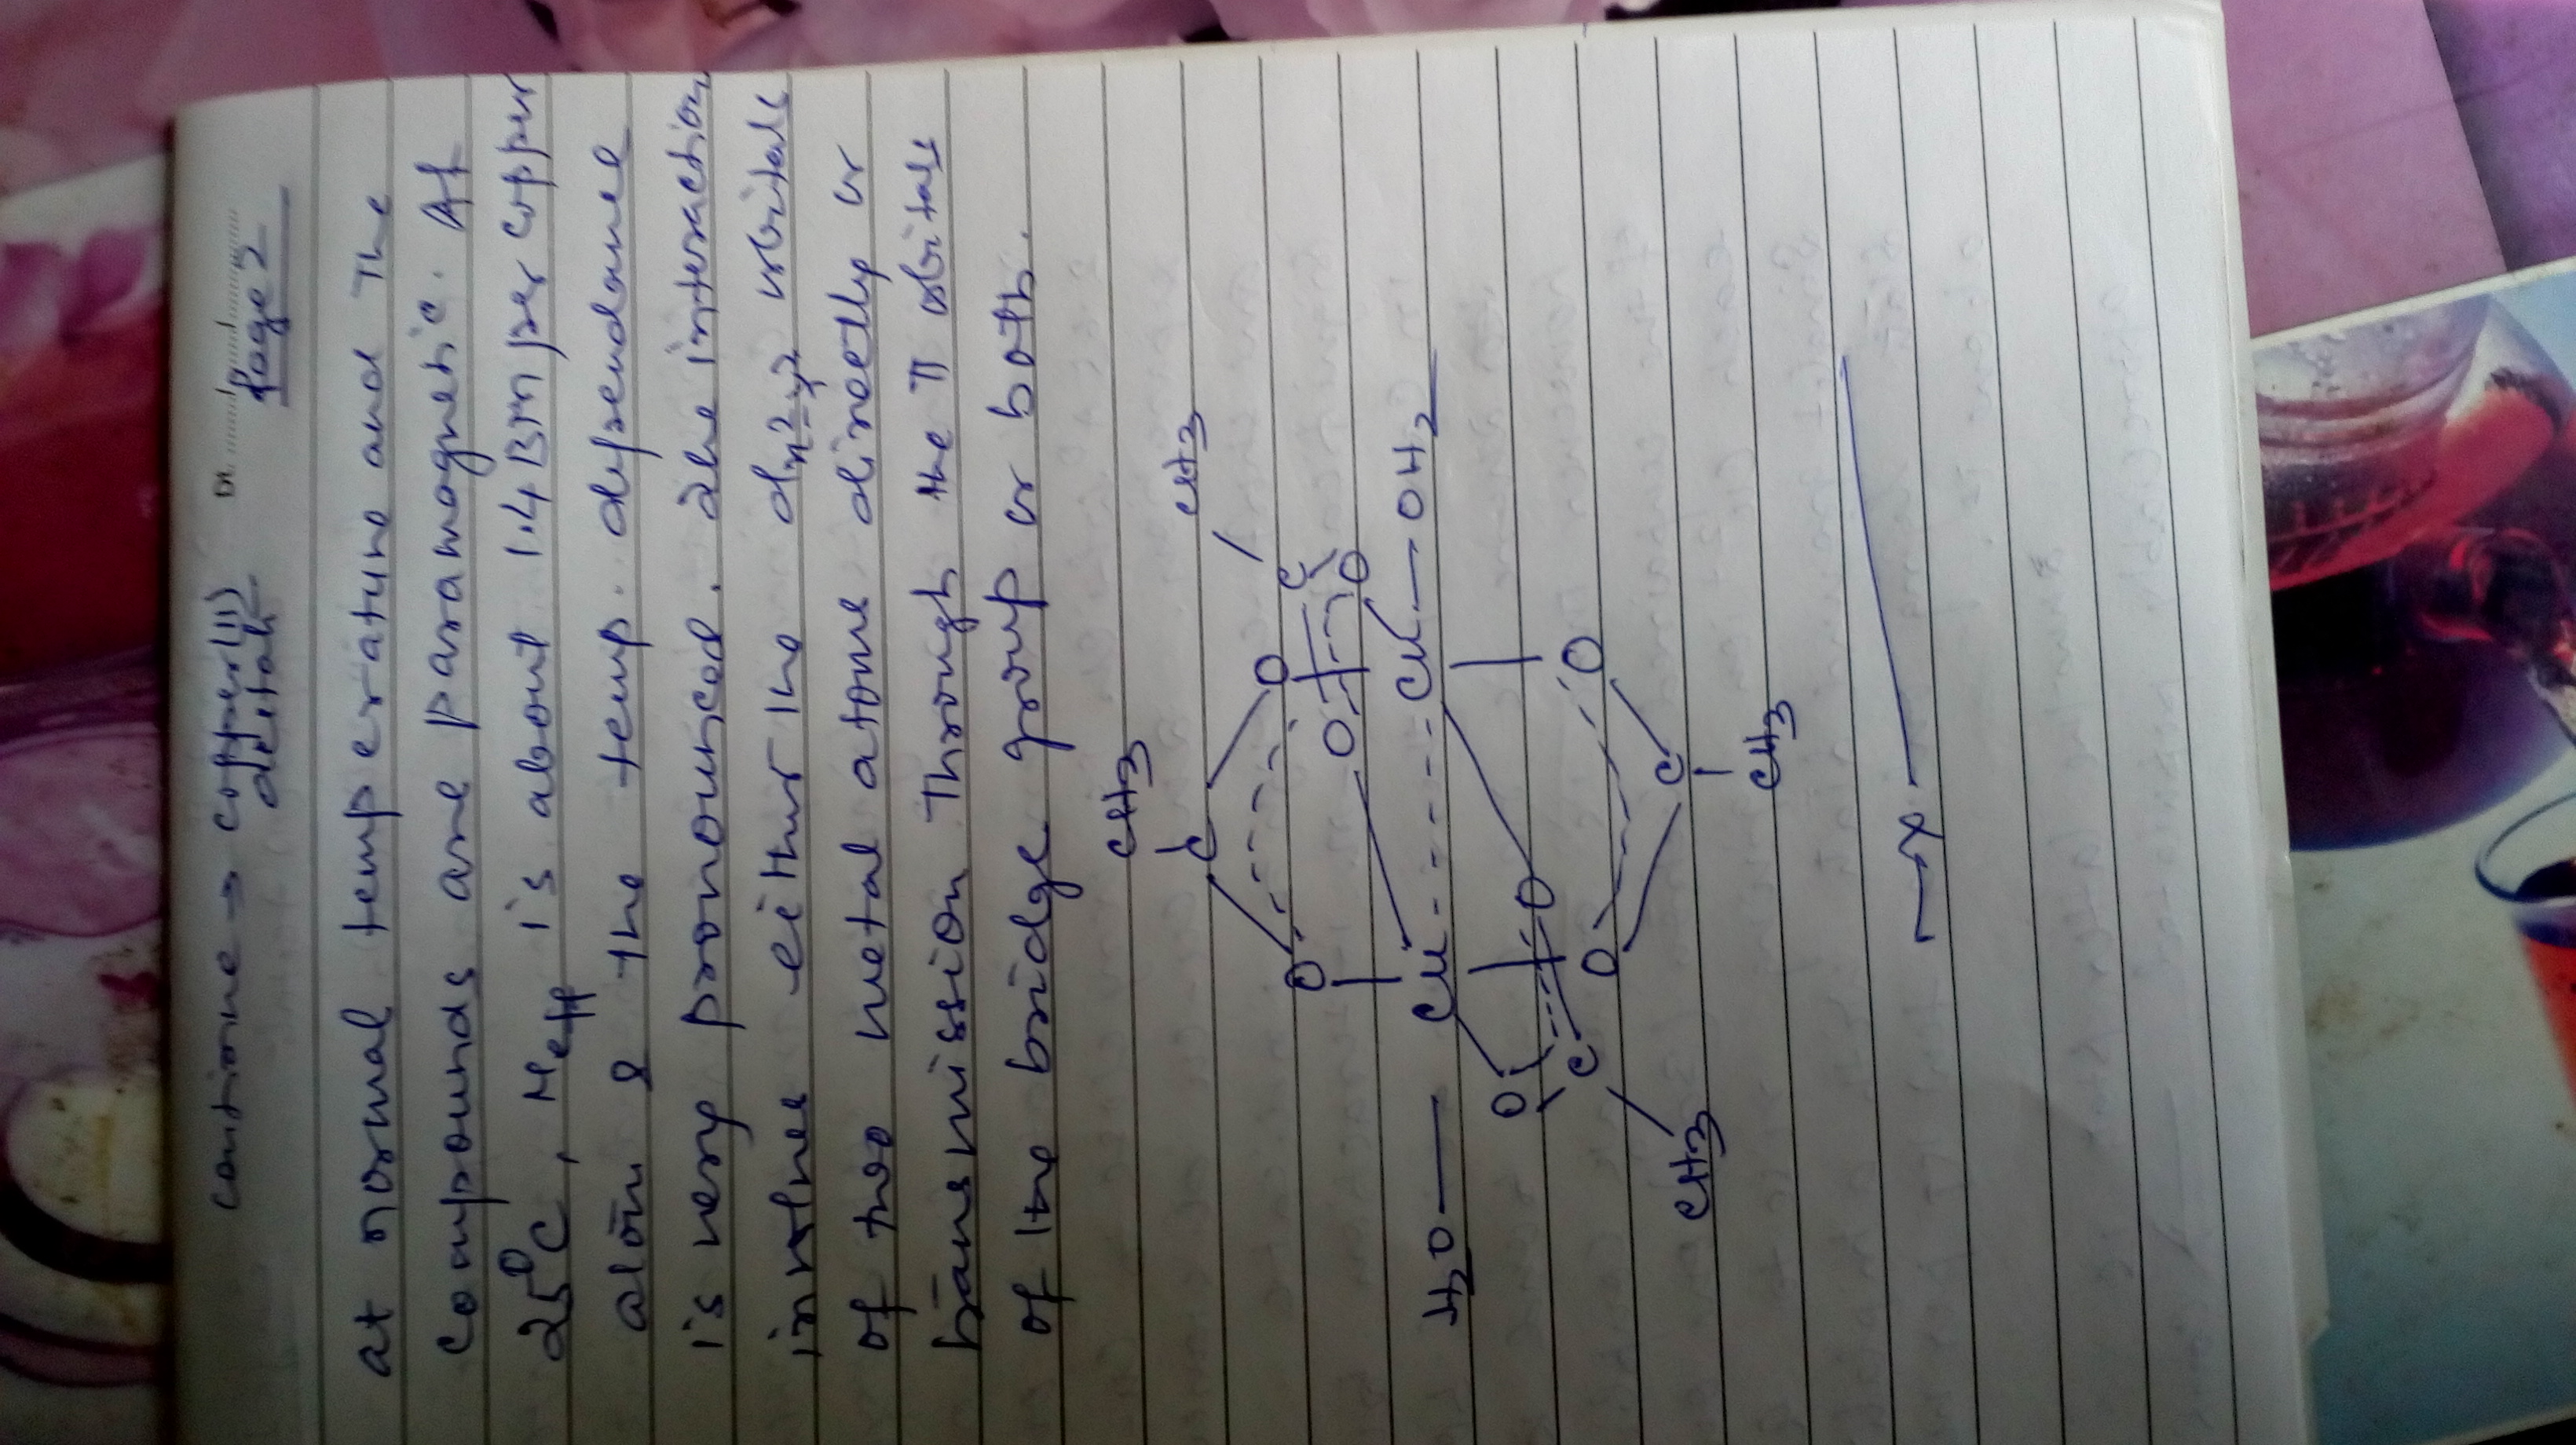 continue → copper(II)
Dt.
page 2
at normal temperature and the
compounds are paramagnetic. At
25°C, Meff is about 1.4 BM per copper
& the temp. dependence
is very pronounced. The interaction
involves either the dx²-y² orbitals
of two metal atoms directly or
transmission through the π orbitals
of the bridge group or both.
CH3
CH3
C
O
C
O
O
O
H2O — Cu --- Cu — OH2
O
O
C
O
O
C
CH3
CH3
—x—